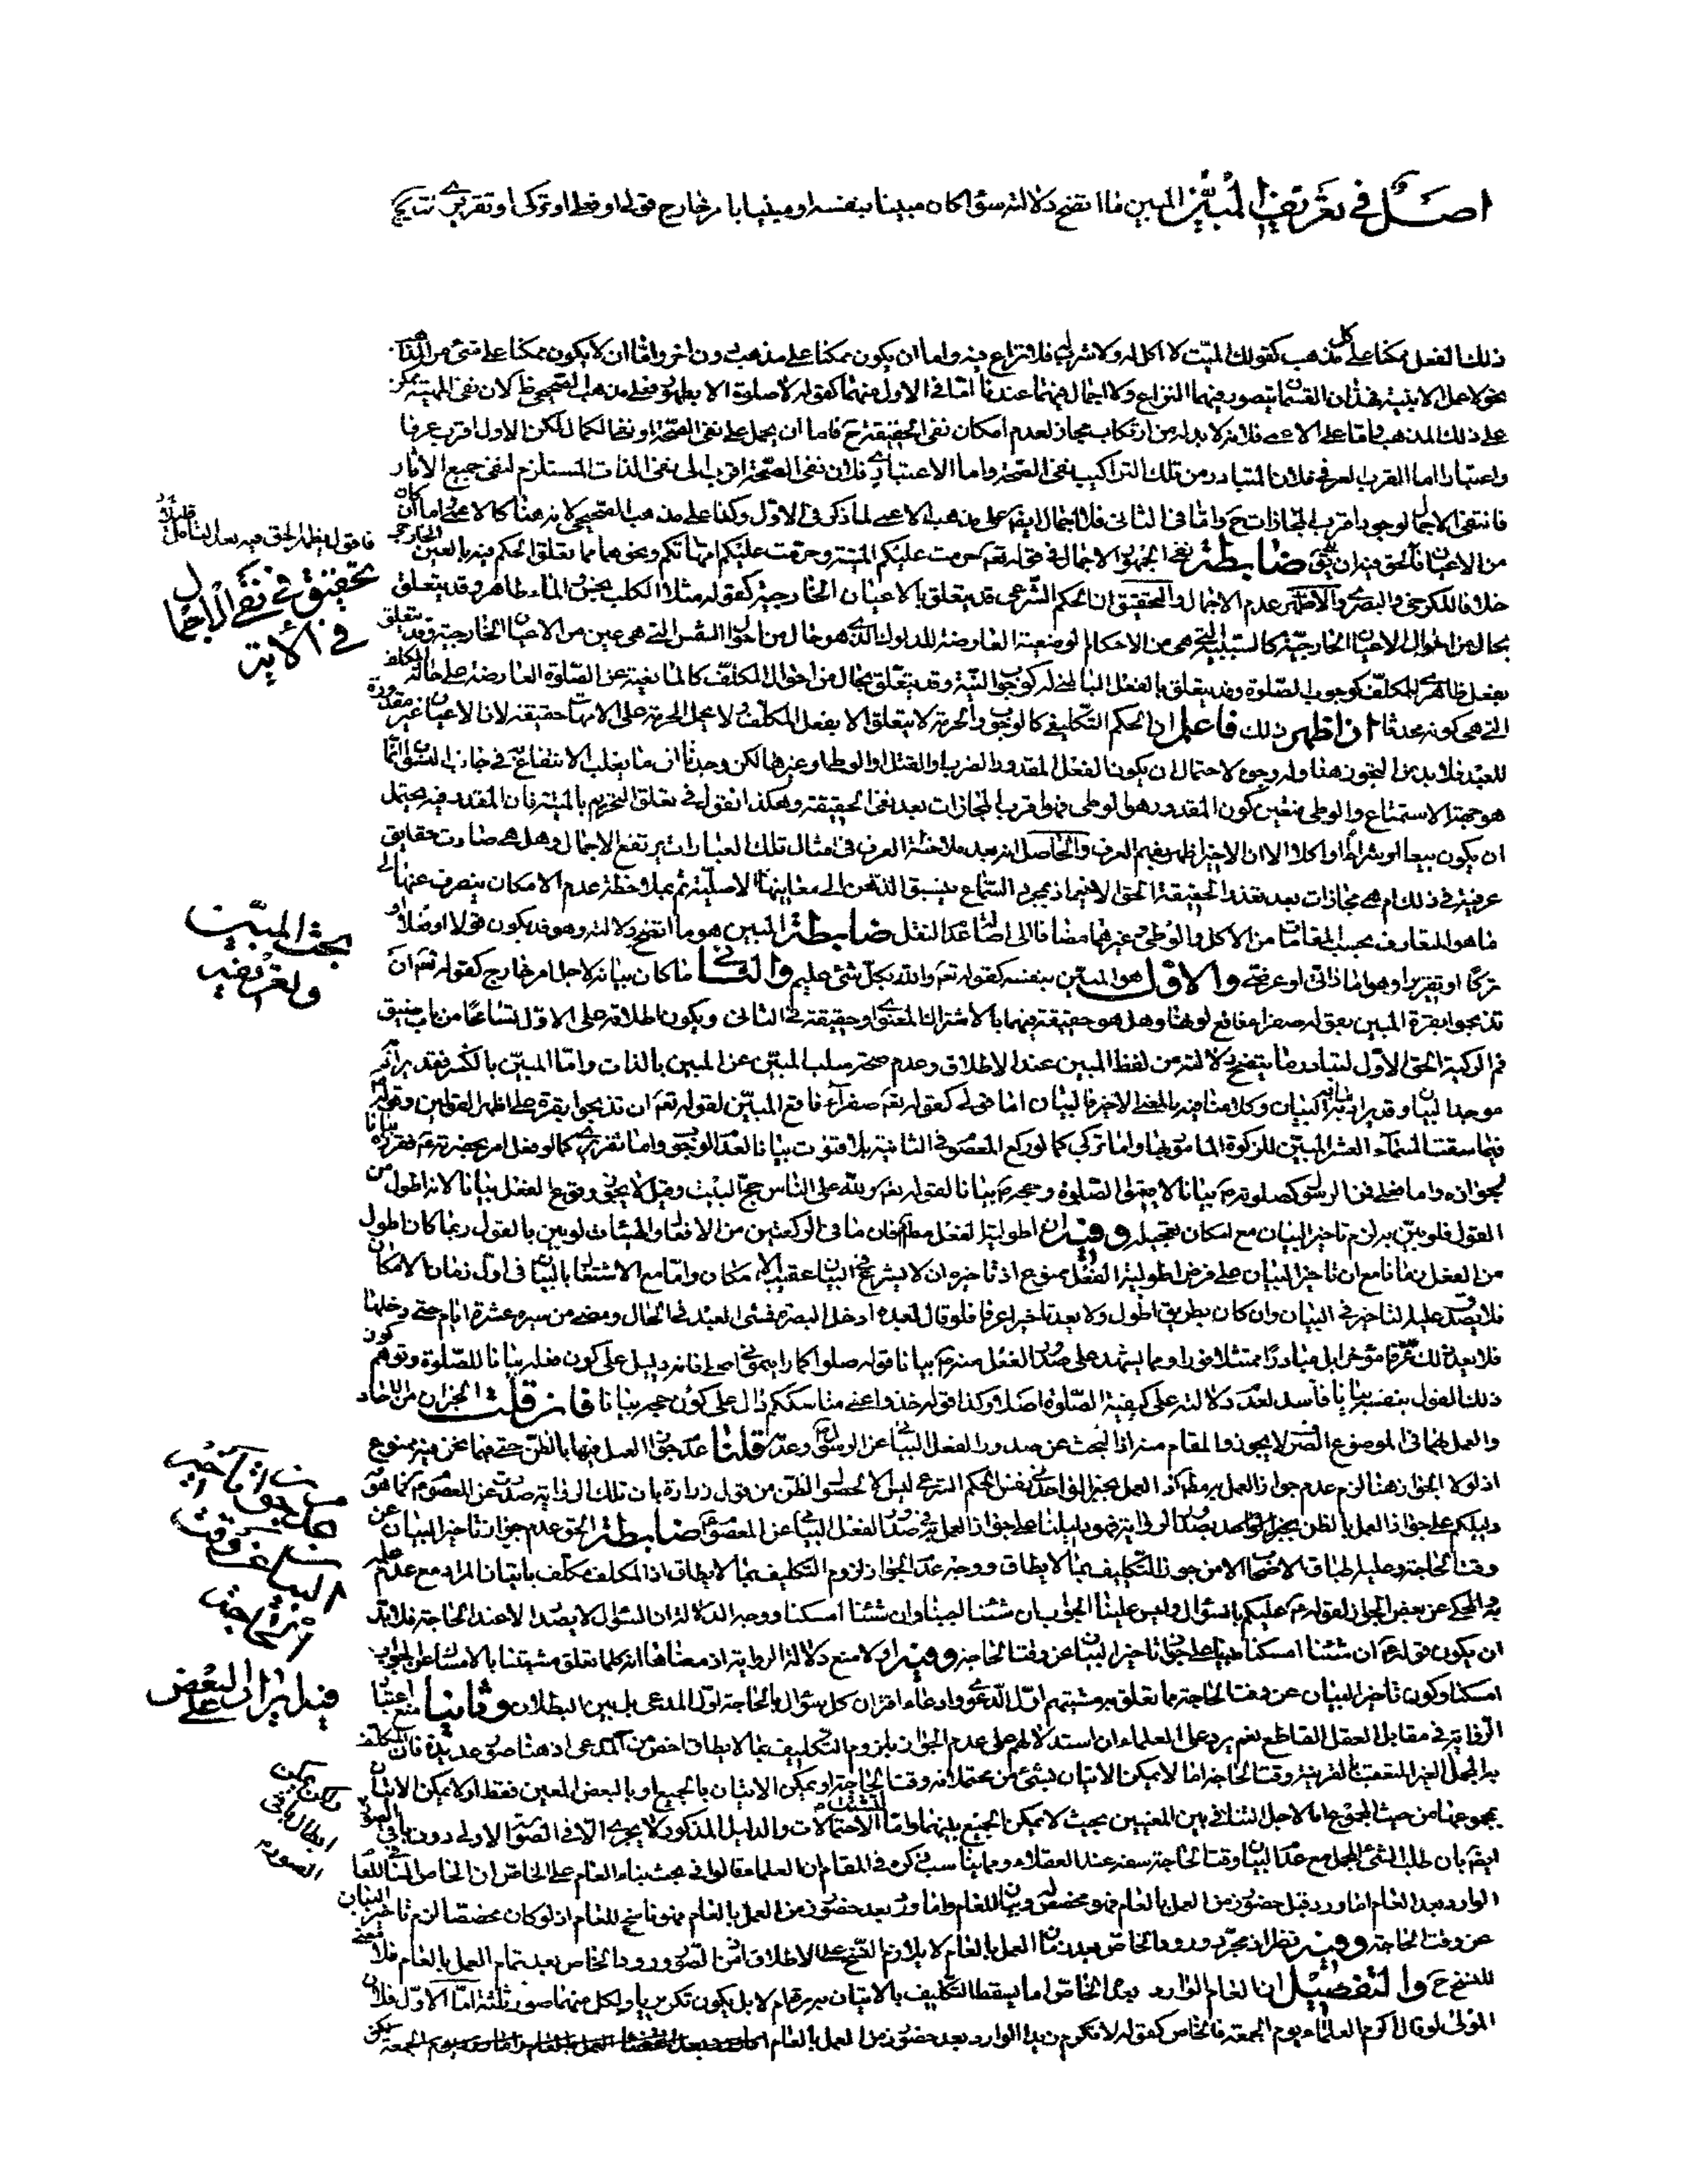 اصل في تعريف المبين المبين ما اتضح دلالته سواء كان مبينا بنفسه او مبينا بامر خارج قولي او فعلي او تركي او تقريري
ذلك الفعل ممكنا على كل مذهب كقولك الميت لا اكل له ولا شرب له فلا نزاع فيه واما ان يكون ممكنا على مذهب دون اخر واما ان لا يكون ممكنا على شئ من المذاهب
نحو لا عمل الا بنية فهذان القسمان يتصور فيهما النزاع ولا اجمال فيهما عندنا اما في الاول منهما كقوله لا صلوة الا بطهور فعلى مذهب الصحيحي ظ لان نفي المهية ممكن
على ذلك المذهب واما على الاعمي فلانه لا بد له من ارتكاب مجاز لعدم امكان نفي الحقيقة ح فاما ان يحمل على نفي الصحة او نفي الكمال لكن الاول اقرب عرفا
واعتبارا اما القرب العرفي فلان المتبادر من تلك التراكيب نفي الصحة واما الاعتباري فلان نفي الصحة اقرب الى نفي الذات المستلزم لنفي جميع الاثار
فانتفى الاجمال لوجود اقرب المجازات ح واما في الثاني فلا اجمال ايضا على مذهب الاعمي لما ذكر في الاول وكذا على مذهب الصحيحي لانه هنا كالاعمي
ضابطة نفى الجمهور الاجمال في قوله تعالى حرمت عليكم الميتة وحرمت عليكم امهاتكم ونحوهما مما تعلق الحكم فيه بالعين
خلافا للكرخي والبصري والاظهر عدم الاجمال والتحقيق ان الحكم الشرعي قد يتعلق بالاعيان الخارجية كقوله مثلا الكلب نجس الماء طاهر وقد يتعلق
بحال من احوال الاعيان الخارجية كالسببية التي هي من الاحكام الوضعية العارضة للدلوك الذي هو حال من احوال الشمس التي هي عين من الاعيان الخارجية وقد يتعلق
بفعل ظاهري للمكلف كوجوب الصلوة وقد يتعلق بالفعل الباطني له كوجوب النية وقد يتعلق بحال من احوال المكلف كالمانعية عن الصلوة العارضة على حالة المكلف
التي هي كونه محدثا اذا ظهر ذلك فاعلم ان الحكم التكليفي كالوجوب والحرمة لا يتعلق الا بفعل المكلف ولا يحمل الحرمة على الامهات حقيقة لان الاعيان غير مقدورة
للعبد فلا بد من التجوز هنا وله وجوه لاحتمال ان يكون الفعل المقدر الضرب او القتل او الوطي او غيرها لكن وجدنا ان ما يغلب الانتفاع في جانب النسوان انما
هو جهة الاستمتاع والوطي فتعين كون المقدر هو الوطي فهو اقرب المجازات بعد نفي الحقيقة وهكذا نقول في تعلق التحريم بالميتة فان المقدر فيه يحتمل
ان يكون بيعا او شراء او اكلا الا ان الاخير اظهر بفهم العرف والحاصل انه بعد ملاحظة العرف في امثال تلك العبارات يرتفع الاجمال وهل هي صارت حقايق
عرفية في ذلك ام هي مجازات بعد تعذر الحقيقة الحق الاخير اذ بمجرد السماع ينسبق الذهن الى معانيها الاصلية ثم بملاحظة عدم الامكان ينصرف عنها الى
ما هو المتعارف بحسب المقامات من الاكل والوطي وغيرهما مضافا الى اصالة عدم النقل ضابطة المبين هو ما اتضح دلالته وهو قد يكون قولا او فعلا او
تركا او تقريرا وهو اما ذاتي او عرضي والاول هو المبين بنفسه كقوله تعالى والله بكل شئ عليم والثاني ما كان بيانه لاجل امر خارج كقوله تعالى ان
تذبحوا بقرة المبين بقوله صفراء فاقع لونها وهل هو حقيقة فيهما بالاشتراك المعنوي او حقيقة في الثاني ويكون اطلاقه على الاول تسامحا من باب ضيق
فم الركية الحق الاول لتبادر ما يتضح دلالته من لفظ المبين عند الاطلاق وعدم صحة سلب المبين عن المبين بالذات واما المبين بالكسر فقد يراد به
موجد البيان وقد يراد به ما به البيان وكلامنا فيه بالمعنى الاخير فالبيان اما قولي كقوله تعالى صفراء فاقع المبين لقوله تعالى ان تذبحوا بقرة على اظهر القولين وقوله
فيما سقت السماء العشر المبين للزكوة المامور بها واما تركي كما لو ركع المعصوم في الثانية بلا قنوت بيانا لعدم الوجوب واما تقريري كما لو فعل امر بحضرته فقرره بيانا
لجوازه واما فعلي من الرسول كصلوته بيانا لاقيموا الصلوة وحجه بيانا لقوله تعالى ولله على الناس حج البيت وقيل لا يجوز وقوع الفعل بيانا لانه اطول من
القول فلو بين به لزم تاخير البيان مع امكان تعجيله وفيه ان اطولية الفعل مطلقا فان ما في الركعتين من الافعال والهيئات لو بين بالقول ربما كان اطول
من الفعل زمانا مع ان تاخير البيان على فرض اطولية الفعل ممنوع اذ تاخيره ان لا يشرع في البيان عقيب الامكان واما مع الاشتغال بالبيان في اول زمان الامكان
فلا يصدق عليه التاخير في البيان وان كان بطريق اطول ولا يعد تاخيرا عرفا فلو قال لعبده ادخل البصرة فمشى العبد في الحال ومضى من سيره عشرة ايام حتى دخلها
فلا يعد ذلك عرفا مؤخرا بل مبادرا ممتثلا فورا ومما يشهد على صدور الفعل منه بيانا قوله صلوا كما رايتموني اصلي فانه دليل على كون فعله بيانا للصلوة وتوهم كون
ذلك القول بنفسه بيانا فاسد لعدم دلالته على كيفية الصلوة اصلا وكذا قوله خذوا عني مناسككم دال على كون حجه بيانا فان قلت الخبران من الاحاد
والعمل بهما في الموضوع الصرف لا يجوز والمقام منه اذ البحث عن صدور الفعل البياني عن الرسول وعدمه قلنا عدم جواز العمل فيها بالظن حتى فيما نحن فيه ممنوع
اذ لو لا الجواز هنا لزم عدم جواز العمل به مطلقا اذ العمل بخبر الواحد في نفس الحكم الشرعي ليس الا لحصول الظن من قول زرارة بان تلك الرواية صدرت عن المعصوم كما هو
دليلكم على جواز العمل بالظن بخبر الواحد بصدور الرواية فهو دليلنا على جواز العمل به في صدور الفعل البياني عن المعصوم ضابطة الحق عدم جواز تاخير البيان عن
وقت الحاجة وعليه اطباق الاصحاب الا من جوز التكليف بما لا يطاق ووجه عدم الجواز لزوم التكليف بما لا يطاق اذ المكلف مكلف باتيان المراد مع عدم علمه
به والمحكي عن بعض الجواز لقوله عليكم بالسؤال وليس علينا الجواب ان شئنا اجبنا وان شئنا امسكنا ووجه الدلالة ان السؤال لا يصدر الا عند الحاجة فلا بد
ان يكون قوله ان شئنا امسكنا مبنيا على جواز تاخير البيان عن وقت الحاجة وفيه اولا منع دلالة الرواية اذ معناها انه كلما تعلق مشيتنا بالامساك عن الجواب
امسكنا وكون تاخير البيان عن وقت الحاجة مما تعلق به مشيتهم اول الدعوى وادعاء اقتران كل سؤال بالحاجة اول المدعى بل بين البطلان وثانيا منع اعتبار
الرواية في مقابل العقل القاطع نعم يرد على العلماء ان استدلالهم على عدم الجواز بلزوم التكليف بما لا يطاق اخص من المدعى اذ هنا صور عديدة فان المكلف
به المجمل الغير المتعقب بالقرينة وقت الحاجة اما لا يمكن الاتيان بشئ من محتملاته وقت الحاجة او يمكن الاتيان بالجميع او بالبعض المعين فقط او لا يمكن الاتيان
بمجموعها من حيث المجموع اما لاجل التنافي بين المعنيين بحيث لا يمكن الجمع بينهما واما الاحتمالات والدليل المذكور لا يجري الا في الصورة الاولى دون باقي الصور
ايضا بان طلب الشئ المجمل مع عدم البيان وقت الحاجة سفه عند العقلاء ومما يناسب ذكره في المقام ان العلماء قالوا في بحث بناء العام على الخاص ان الخاص المنافي للعام
الوارد بعد العام اما ورد قبل حضور زمن العمل بالعام فهو مخصص له وبيان للعام واما ورد بعد حضور زمن العمل بالعام فهو ناسخ للعام اذ لو كان مخصصا لزم تاخير البيان
عن وقت الحاجة وفيه نظر اذ مجرد ورود الخاص بعد زمان العمل بالعام لا يلازم النسخ على الاطلاق اذ من الصور ورود الخاص بعد تمام العمل بالعام فلا معنى
للنسخ ح والتفصيل ان العام الوارد بعده الخاص اما يسقط التكليف بالاتيان به مرة ام لا بل يكون تكريريا ولكل منهما صور ثلثة اما الاول فلان
المولى لو قال اكرم العلماء يوم الجمعة فالخاص كقوله لا تكرم زيدا الوارد بعد حضور زمن العمل بالعام
تحقيق في نفي الاجمال
في الاية
بحث المبين
وتعريفه
عدم جواز تاخير
البيان عن وقت
الحاجة
فيه ايراد البعض
على